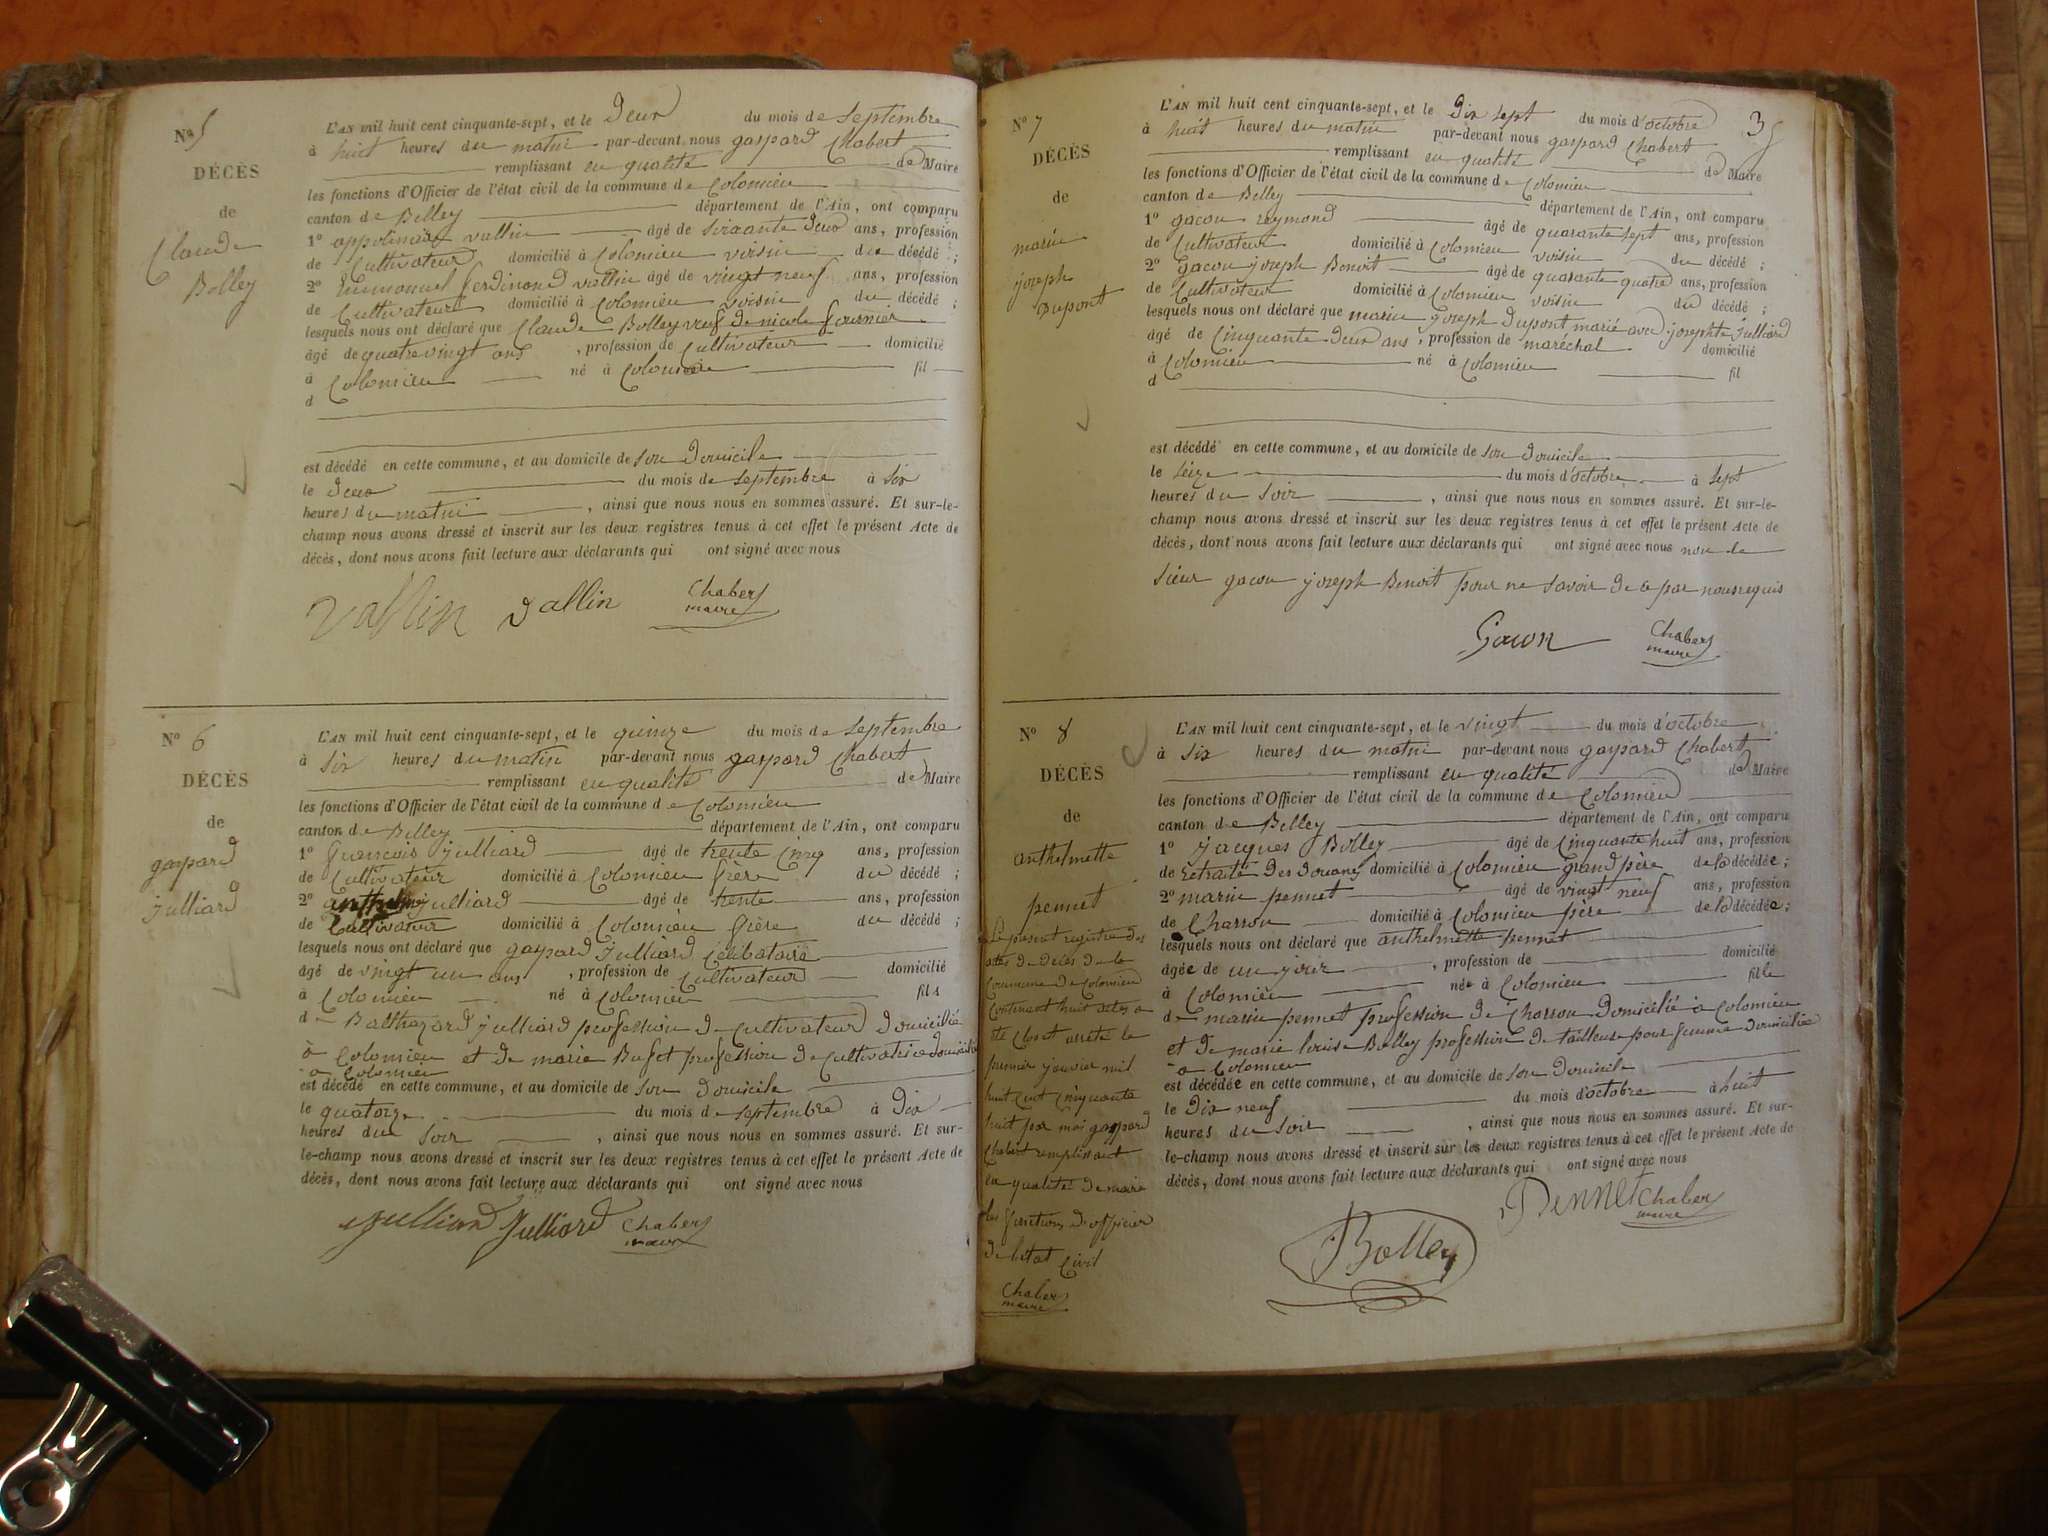 Nº 5
DÉCÈS
de
Claude
Bolley
L'AN mil huit cent cinquante-sept, et le Deux du mois de Septembre
à huit heures du matin par-devant nous gaspard Chabert
remplissant en qualité de Maire
les fonctions d'Officier de l'état civil de la commune de Colomieu
canton de Belley département de l'Ain, ont comparu
1º appolinaire vallin âgé de soixante deux ans, profession
de Cultivateur domicilié à Colomieu voisin du décédé ;
2º Emmanuel ferdinand vallin âgé de vingt neuf ans, profession
de Cultivateur domicilié à Colomieu voisin du décédé ;
lesquels nous ont déclaré que Claude Bolley veuf de nicole fournier
âgé de quatre vingt ans , profession de Cultivateur domicilié
à Colomieu né à Colomieu fil
d
est décédé en cette commune, et au domicile de son domicile
le deux du mois de septembre à six
heures du matin , ainsi que nous nous en sommes assuré. Et sur-le-
champ nous avons dressé et inscrit sur les deux registres tenus à cet effet le présent Acte de
décès, dont nous avons fait lecture aux déclarants qui ont signé avec nous
Vallin Vallin Chabert
maire
Nº 6
DÉCÈS
de
gaspard
Julliard
L'AN mil huit cent cinquante-sept, et le quinze du mois de Septembre
à six heures du matin par-devant nous gaspard Chabert
remplissant en qualité de Maire
les fonctions d'Officier de l'état civil de la commune de Colomieu
canton de Belley département de l'Ain, ont comparu
1º francois Julliard âgé de trente cinq ans, profession
de Cultivateur domicilié à Colomieu frère du décédé ;
2º anthelme Julliard âgé de trente ans, profession
de Cultivateur domicilié à Colomieu frère du décédé ;
lesquels nous ont déclaré que gaspard Julliard Célibataire
âgé de vingt un ans , profession de Cultivateur domicilié
à Colomieu né à Colomieu fils
de Balthazard Julliard profession de Cultivateur domicilié
à Colomieu et de marie profession de Cultivatrice domicilié
à Colomieu
est décédé en cette commune, et au domicile de son domicile
le quatorze du mois de septembre à Dix
heures du soir , ainsi que nous nous en sommes assuré. Et sur-
le-champ nous avons dressé et inscrit sur les deux registres tenus à cet effet le présent Acte de
décès, dont nous avons fait lecture aux déclarants qui ont signé avec nous
Julliard Julliard Chabert
maire
35
Nº 7
DÉCÈS
de
marin
joseph
Dupont
L'AN mil huit cent cinquante-sept, et le Dix sept du mois d'octobre
à huit heures du matin par-devant nous gaspard Chabert
remplissant en qualité de Maire
les fonctions d'Officier de l'état civil de la commune de Colomieu
canton de Belley département de l'Ain, ont comparu
1º gacon reymond âgé de quarante sept ans, profession
de Cultivateur domicilié à Colomieu voisin du décédé ;
2º gacon joseph Benoit âgé de quarante quatre ans, profession
de Cultivateur domicilié à Colomieu voisin du décédé ;
lesquels nous ont déclaré que marin joseph Dupont marié avec josephte Julliard
âgé de Cinquante deux ans , profession de maréchal domicilié
à Colomieu né à Colomieu fil
d
est décédé en cette commune, et au domicile de son domicile
le seize du mois d'octobre à sept
heures du soir , ainsi que nous nous en sommes assuré. Et sur-le-
champ nous avons dressé et inscrit sur les deux registres tenus à cet effet le présent Acte de
décès, dont nous avons fait lecture aux déclarants qui ont signé avec nous non le
sieur gacon joseph Benoit pour ne savoir de ce par nous requis
Gacon Chabert
maire
Nº 8
DÉCÈS
de
anthelmette
pennet
L'AN mil huit cent cinquante-sept, et le vingt du mois d'octobre
à six heures du matin par-devant nous gaspard Chabert
remplissant en qualité de Maire
les fonctions d'Officier de l'état civil de la commune de Colomieu
canton de Belley département de l'Ain, ont comparu
1º Jacques Bolley âgé de Cinquante huit ans, profession
de Retraité des douanes domicilié à Colomieu grand père de la décédée ;
2º marin pennet âgé de vingt neuf ans, profession
de Charron domicilié à Colomieu père de la décédée ;
lesquels nous ont déclaré que anthelmette pennet
âgée de un jour , profession de domicilié
à Colomieu née à Colomieu fille
de marin pennet profession de Charron domicilié à Colomieu
et de marie louise Bolley profession de tailleuse pour femme domiciliée
à Colomieu
est décédée en cette commune, et au domicile de son domicile
le Dix neuf du mois d'octobre à huit
heures du soir , ainsi que nous nous en sommes assuré. Et sur-
le-champ nous avons dressé et inscrit sur les deux registres tenus à cet effet le présent Acte de
décès, dont nous avons fait lecture aux déclarants qui ont signé avec nous
Bolley Pennet Chabert
maire
Le présent registre des
actes de décès de la
Commune de Colomieu
Contenant huit actes a
été clos et arrêté le
premier janvier mil
huit cent cinquante
huit par moi gaspard
Chabert remplissant
en qualité de maire
les fonctions d'officier
de l'etat civil
Chabert
maire